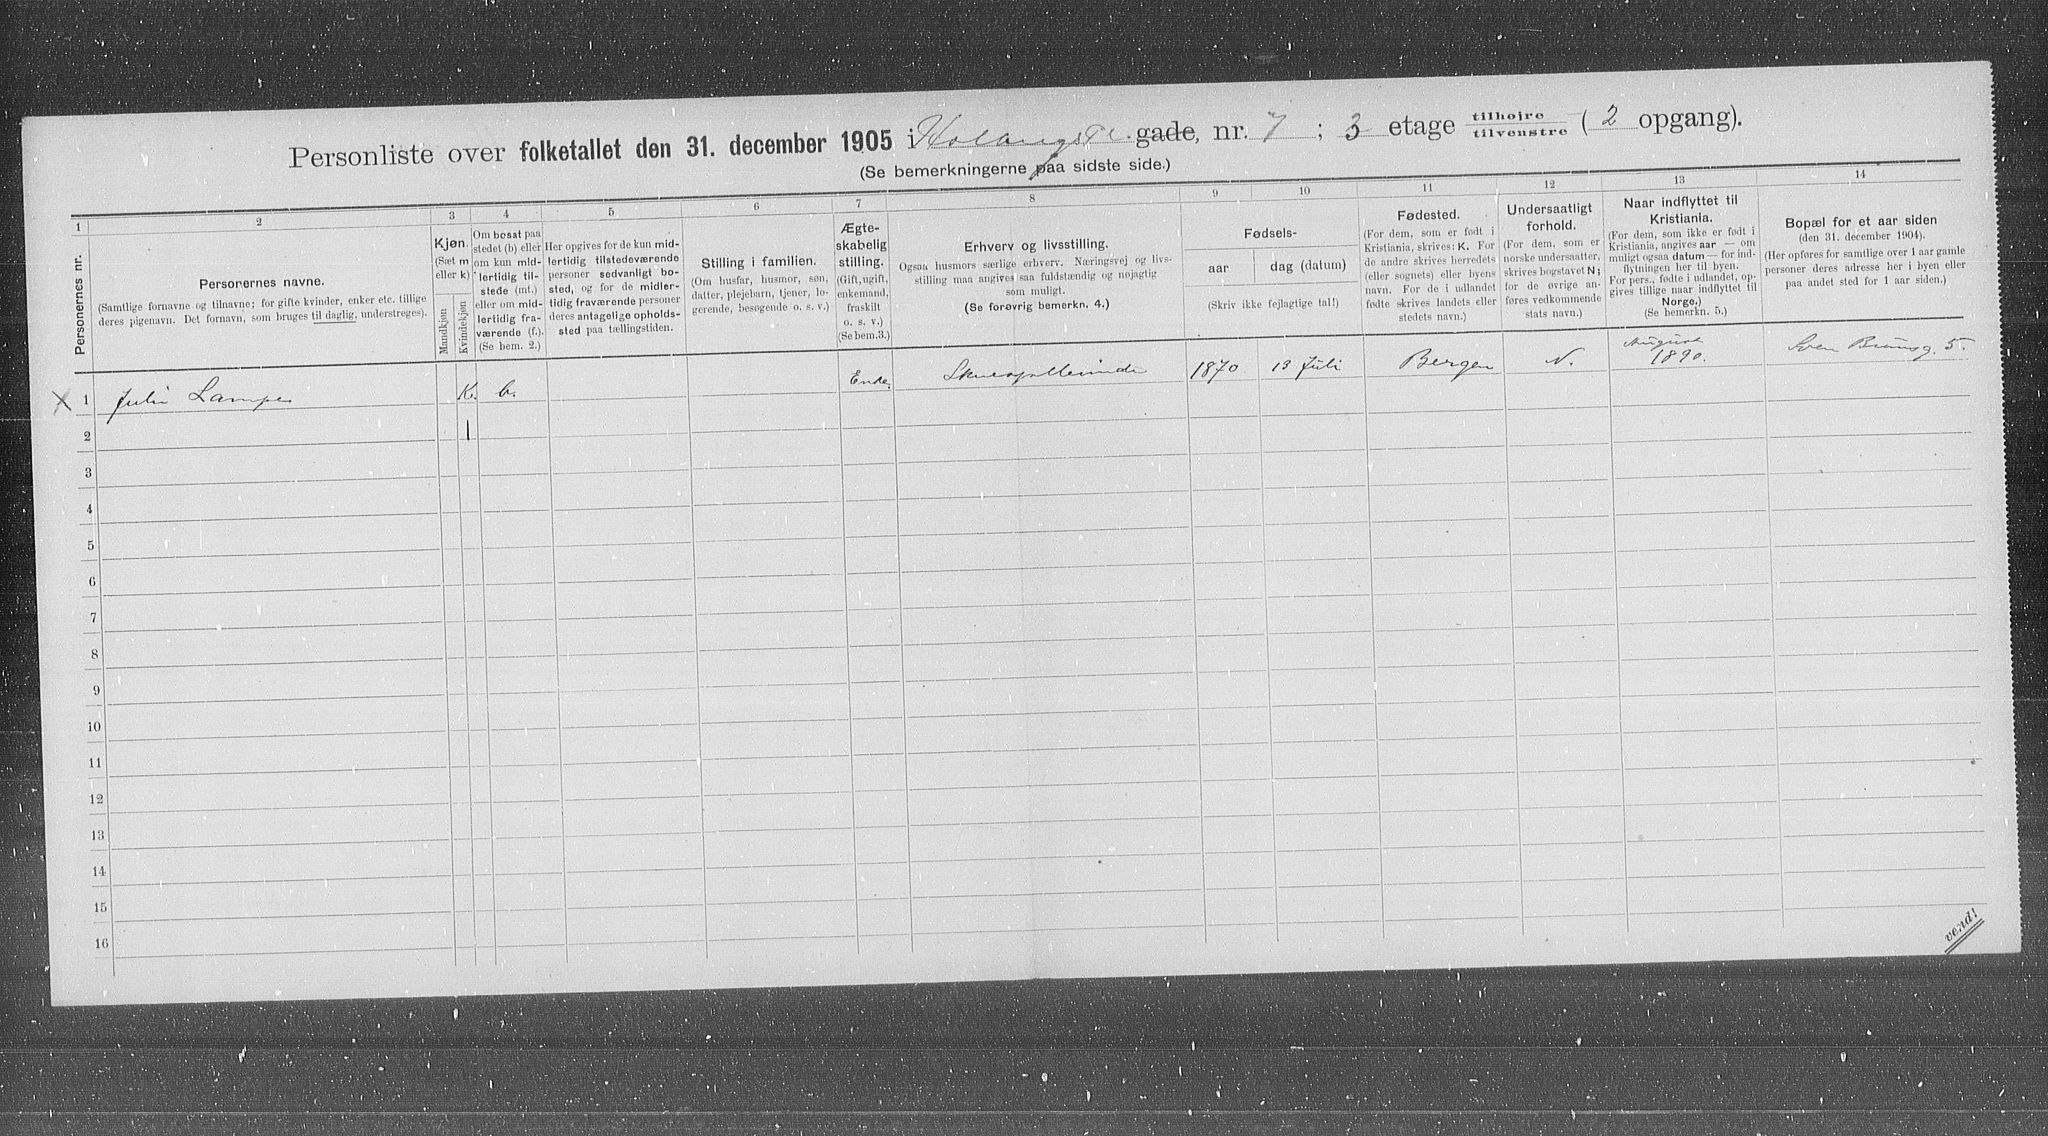 Personliste over folketallet den 31. december 1905 i gade, nr. 7; 3 etage tilhøire tilvenstre (2 opgang).
(Se bemerkningerne paa sidste side.)
1 2 3 4 5 6 7 8 9 10 11 12 13 14
Personernes nr.
Personernes navne.
(Samtlige fornavne og tilnavne; for gifte kvinder, enker etc. tillige
deres pigenavn. Det fornavn, som bruges til daglig, understreges).
Kjøn.
(Sæt m
eller k)
Mandkjøn
Kvindekjøn
Om bosat paa
stedet (b) eller
om kun mid-
lertidig til-
stede (mt.)
eller om mid-
lertidig fra-
værende (f.).
(Se bem. 2.)
Her opgives for de kun mid-
lertidig tilstedeværende
personer sedvanlig bo-
sted, og for de midler-
tidig fraværende personer
deres antagelige opholds-
sted paa tællingstiden.
Stilling i familien.
(Om husfar, husmor, søn,
datter, plejebarn, tjener, lo-
gerende, besøgende o. s. v.)
Ægte-
skabelig
stilling.
(Gift, ugift,
enkemand,
fraskilt
o. s. v.)
(Se bem. 3.)
Erhverv og livsstilling.
Ogsaa husmors særlige erhverv. Næringsvej og livs-
stilling maa angives saa fuldstændig og nøjagtig
som muligt.
(Se forøvrig bemerkn. 4.)
Fødsels-
aar
dag (datum)
(Skriv ikke fejlagtige tal!)
Fødested.
(For dem, som er født i
Kristiania, skrives: K. For
de andre skrives herredets
(eller sognets) eller byens
navn. For de i udlandet
fødte skrives landets eller
stedets navn.)
Undersaatligt
forhold.
(For dem, som er
norske undersaatter,
skrives bogstavet N;
for de øvrige an-
føres vedkommende
stats navn.)
Naar indflyttet til
Kristiania.
(For dem, som ikke er født i
Kristiania, angives aar — om
muligt ogsaa datum — for ind-
flytningen her til byen.
For pers., født i udlandet, op-
gives tillige naar indflyttet til
Norge.)
(Se bemerkn. 5.)
Bopæl for et aar siden
(den 31. december 1904).
(Her opføres for samtlige over 1 aar gamle
personer deres adresse her i byen eller
paa andet sted for 1 aar siden.)
X 1 Julie Lampe K. b. Enke. Skuespillerinde 1870 13 Juli Bergen N. August 1890. Sven Brunsg. 5.
2
3
4
5
6
7
8
9
10
11
12
13
14
15
16
vend!